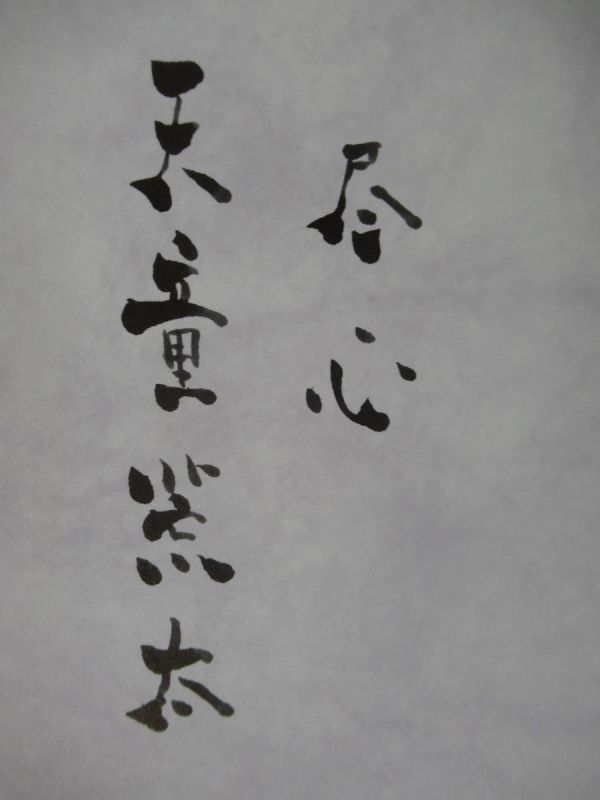 尽心
天童荒太